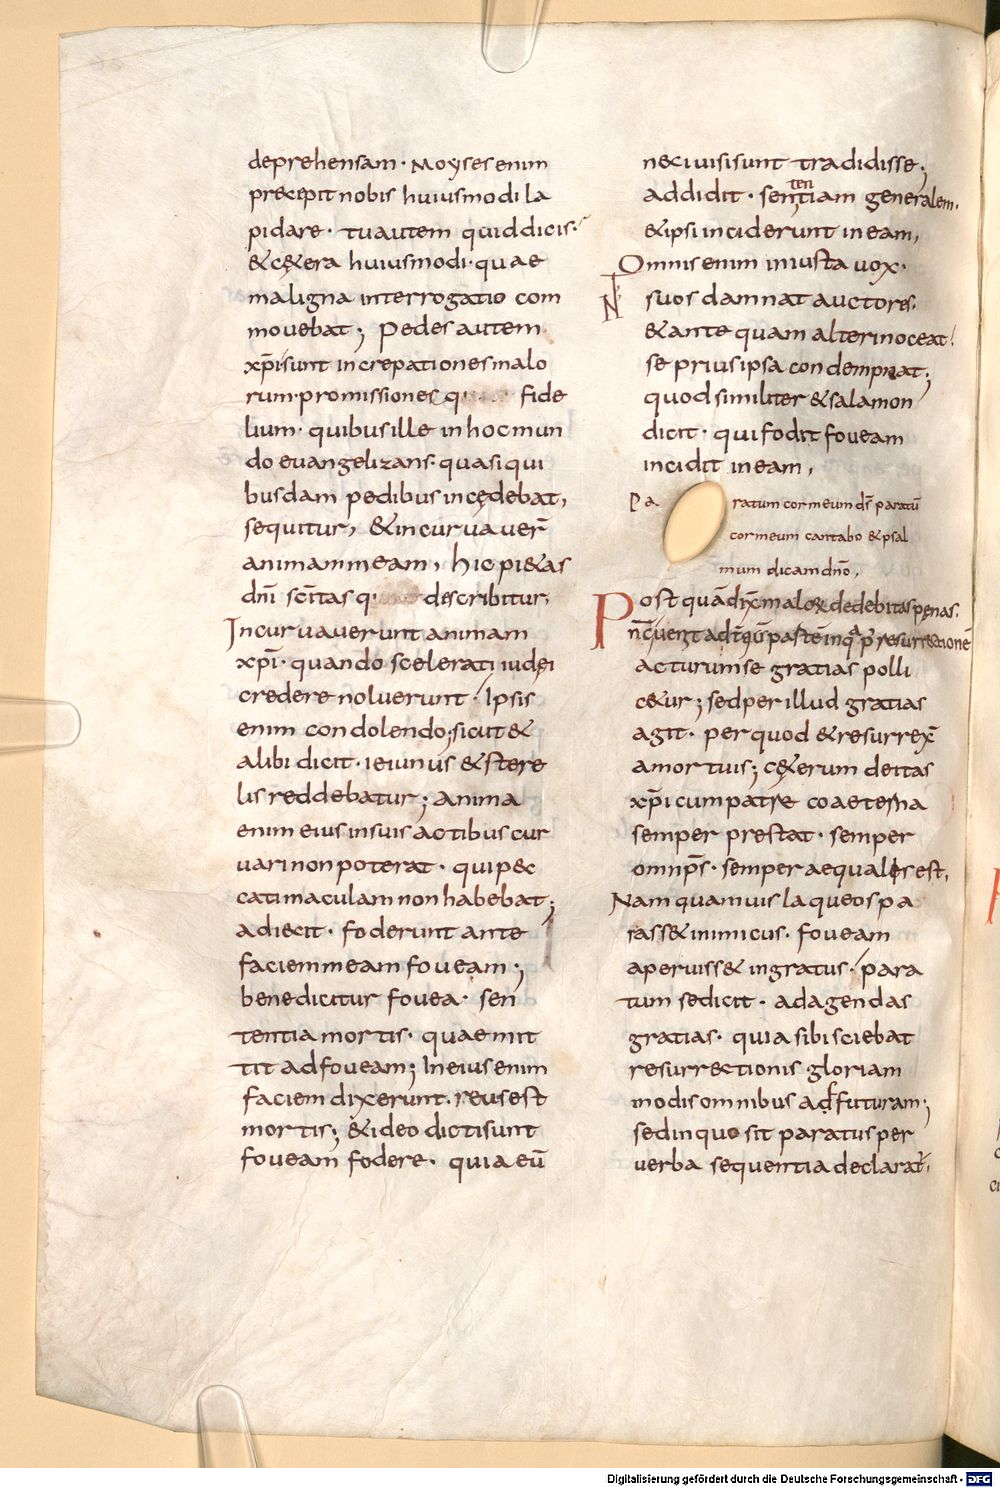 deprehensam · Moyses enim
precepit nobis huiusmodi la
pidare · tu autem quid dicis ·
& c&era huiusmodi · quae
maligna interrogatio com
mouebat ; Pedes autem
xp̄i sunt increpationes malo
rum · promissiones q fide
lium · quibus ille in hoc mun
do euangelizans · quasi qui
busdam pedibus incędebat ,
sequitur , & incuruauer̄
animam meam , hic pi&as
dn̄i sc̄itas q describitur ,
Incuruauerunt animam
xp̄i · quando scelerati iudęi
credere noluerunt · Ipsis
enim condolendo ; sicut &
alibi dicit · ieiunus & stere
lis reddebatur ; anima
enim eius in suis actibus cur
uari non poterat · qui pec
cati maculam non habebat ;
adiecit · foderunt ante
faciem meam foueam ;
benedicitur fouea · sen
tentia mortis · quae mit
tit ad foueam ; In eius enim
faciem dixerunt · reus est
mortis ; & ideo dicti sunt
foueam fodere · quia eū
nec iuisi sunt tradidisse ;
addidit · sentiam generalem ·
ten
& ipsi inciderunt in eam ,
Omnis enim iniusta uox ·
N suos damnat auctores ·
& ante quam alteri noceat !
se prius ipsa condempnat ;
quod similiter & salamon
dicit · qui fodit foueam
incidit in eam ,
Pa ratum cor meum ds̄ paratū
cor meum cantabo & psal
mum dicam dn̄o ,
Post quā dix̄ malos dedebitas pęnas ·
acturum se gratias polli
c&ur ; sed per illud gratias
agit · per quod & resurrex̄
a mortuis ; c&erum deitas
xp̄i cum patre coaeterna
semper prestat · semper
omnp̄s · semper aequalis est ,
Nam quamuis laqueos pa
rass& inimicus · foueam
aperuiss& ingratus · para
tum se dicit · ad agendas
gratias · quia sibi sciebat
resurrectionis gloriam
modis omnibus adfuturam ;
sed in quo sit paratus per
uerba sequentia declarat ·
Digitalisierung gefördert durch die Deutsche Forschungsgemeinschaft - DFG